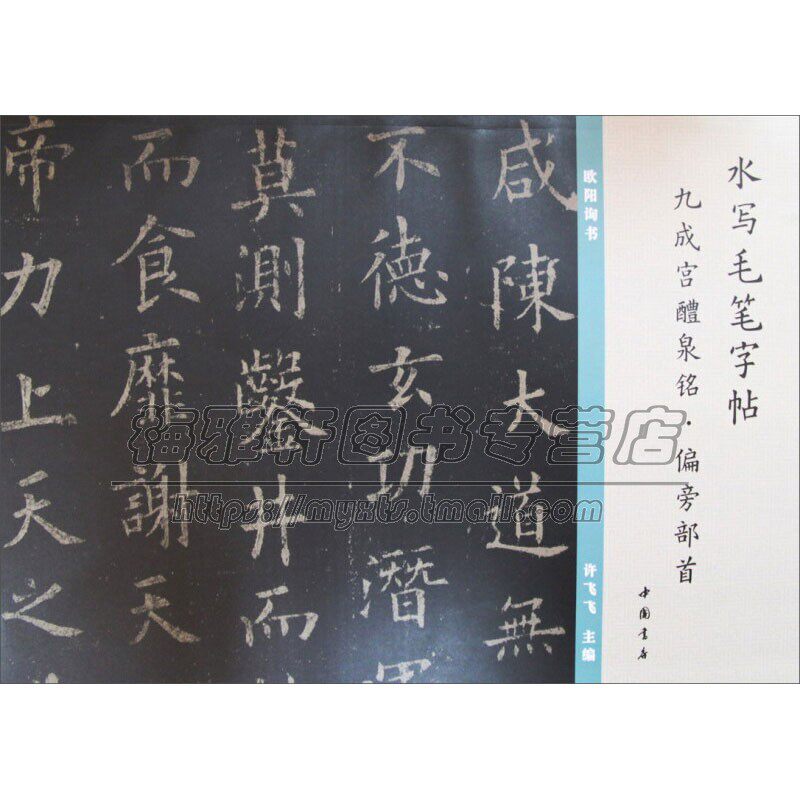 水写毛笔字帖
九成宫醴泉铭·偏旁部首
中国书店
欧阳询书
许飞飞 主编
咸陳大道無
不德玄功潛
莫測鑿井而
而食靡謝天
帝力上天之
梅雅轩图书专营店
https://myxts.tmall.com